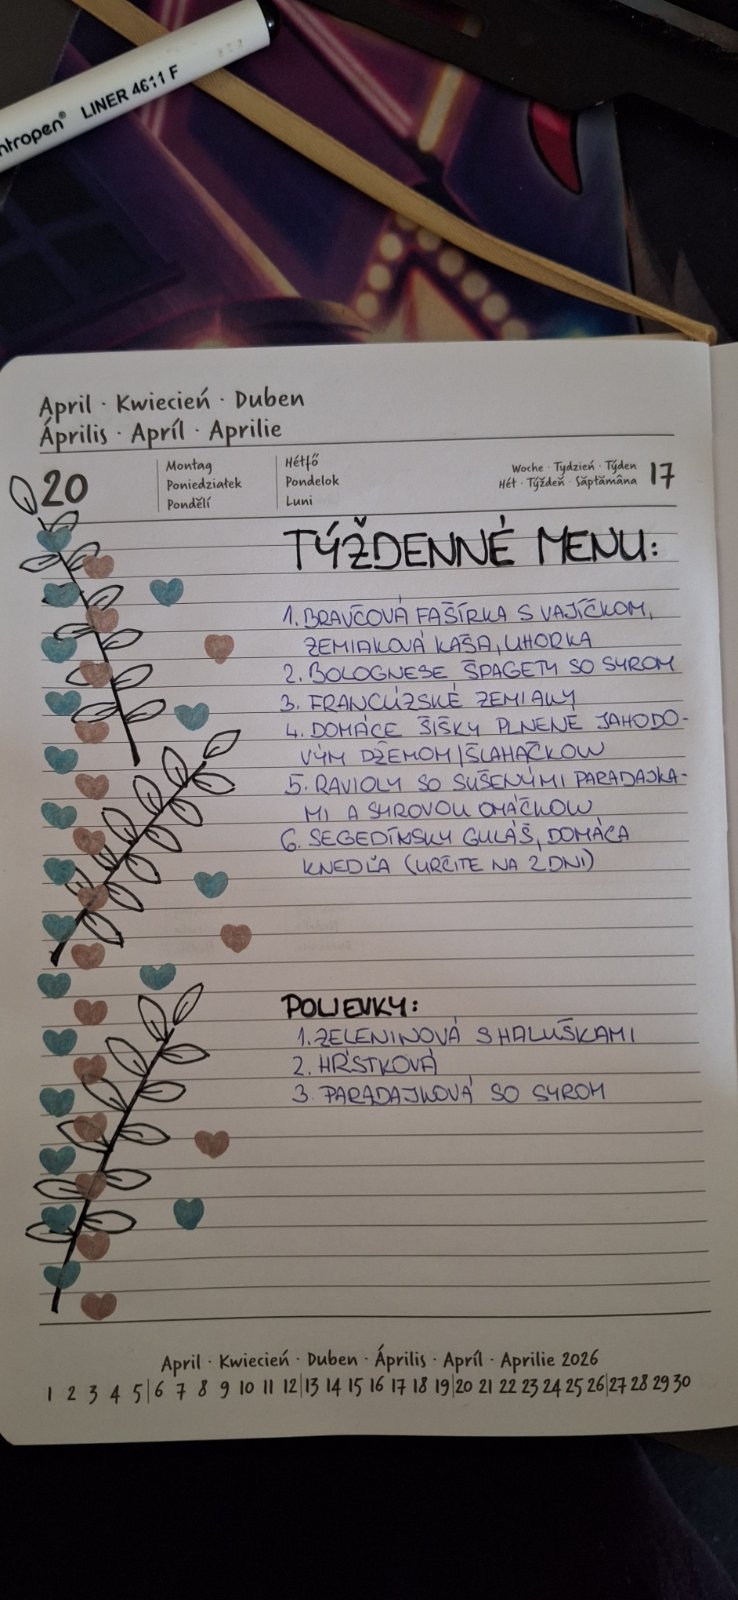 ntropen® LINER 4611 F
April · Kwiecień · Duben
Április · Apríl · Aprilie
20
Montag
Poniedziałek
Pondělí
Hétfő
Pondelok
Luni
Woche · Tydzień · Týden
Hét · Týždeň · Săptămâna
17
TÝŽDENNÉ MENU:
1. BRAVČOVÁ FAŠÍRKA S VAJÍČKOM,
ZEMIAKOVÁ KAŠA, UHORKA
2. BOLOGNESE ŠPAGETY SO SYROM
3. FRANCÚZSKÉ ZEMIAKY
4. DOMÁCE ŠIŠKY PLNENÉ JAHODO-
VÝM DŽEMOM/ŠĽAHAČKOU
5. RAVIOLY SO SUŠENÝMI PARADAJKA-
MI A SYROVOU OMÁČKOU
6. SEGEDÍNSKY GULÁŠ, DOMÁCA
KNEDĽA (URČITE NA 2 DNI)
POLIEVKY:
1. ZELENINOVÁ S HALUŠKAMI
2. HRSTKOVÁ
3. PARADAJKOVÁ SO SYROM
April · Kwiecień · Duben · Április · Apríl · Aprilie 2026
1 2 3 4 5|6 7 8 9 10 11 12|13 14 15 16 17 18 19|20 21 22 23 24 25 26|27 28 29 30